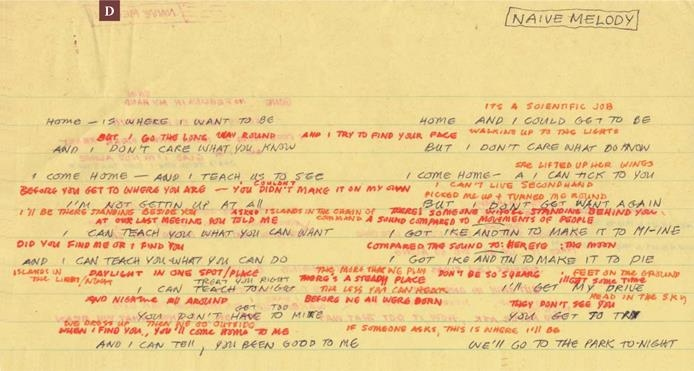 D
NAIVE MELODY
ITS A SCIENTIFIC JOB
HOME – IS WHERE I WANT TO BE
HOME AND I COULD GET TO BE
BUT I GO THE LONG WAY ROUND AND I TRY TO FIND YOUR FACE WALKING UP TO THE LIGHTS
AND I DON'T CARE WHAT YOU KNOW
BUT I DON'T CARE WHAT DO KNOW
SHE LIFTED UP HER WINGS
I COME HOME – AND I TEACH US TO SEE
I COME HOME – A I CAN TICK TO YOU
COULDN'T
I CAN'T LIVE SECONDHAND
BEFORE YOU GET TO WHERE YOU ARE – YOU DIDN'T MAKE IT ON MY OWN
PICKED ME UP + TURNED ME ROUND
I'M NOT GETTIN UP AT ALL
BUT I DON'T GET WANT AGAIN
I'LL BE THERE STANDING BESIDE YOU ISLANDS IN THE CHAIN OF COMMAND
THERE'S SOMEONE STANDING BEHIND YOU
AT OUR LAST MEETING YOU TOLD ME
A SOUND COMPARED TO MOVEMENTS OF PEOPLE
I CAN TEACH YOU WHAT YOU CAN WANT
I GOT IKE AND TIN TO MAKE IT TO MI-INE
DID YOU FIND ME OR I FIND YOU
COMPARED THE SOUND TO: THE MOON
AND I CAN TEACH YOU WHAT YOU CAN DO
I GOT IKE AND TIN TO MAKE IT TO PIE
ISLANDS IN THE LIGHT
DAYLIGHT IN ONE SPOT/PLACE
THE MORE THAT WE PLAY DON'T BE SO SQUARE
FEET ON THE GROUND
TREAT YOU RIGHT
THERE'S A STEADY PLACE
I'LL GET SOME TIME
I CAN TEACH TONIGHT
THE LESS YOU CAN HEAR
I'LL GET MY DRIVE
AND NIGHTIME ALL AROUND
BEFORE WE ALL WERE BORN
HEAD IN THE SKY
GET TOO
THEY DON'T SEE YOU
YOU DON'T HAVE TO
YOU GET TO
WE DRESS UP THEN WE GO OUTSIDE
WHEN I FIND YOU, YOU'LL COME HOME TO ME
IF SOMEONE ASKS, THIS IS WHERE I'LL BE
AND I CAN TELL, YOU BEEN GOOD TO ME
WE'LL GO TO THE PARK TO-NIGHT